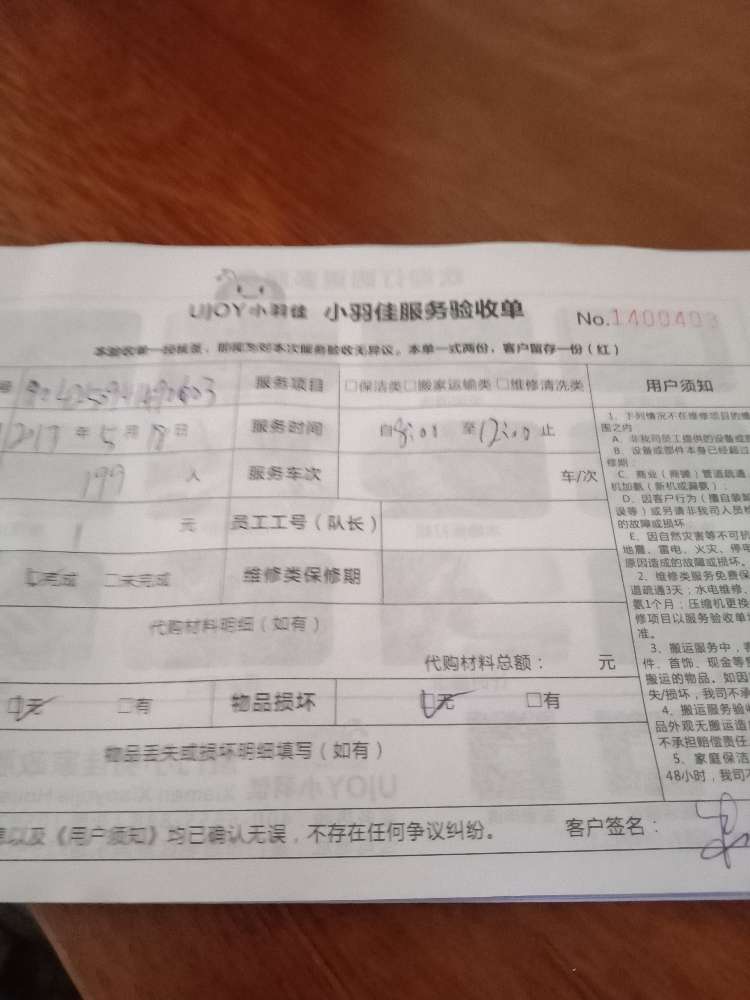 UJOY小羽佳 小羽佳服务验收单 No.1400403
本验收单一经核签，即视为对本次服务验收无异议。本单一式两份，客户留存一份（红）
号 服务项目 □保洁类□搬家运输类□维修清洗类 用户须知
年5月18日 服务时间 自8:00 至12:00止
199 人 服务车次 车/次
1 元 员工工号（队长）
完成 □未完成 维修类保修期
代购材料明细（如有）
代购材料总额： 元
无 □有 物品损坏 无 □有
物品丢失或损坏明细填写（如有）
以及《用户须知》均已确认无误，不存在任何争议纠纷。 客户签名：
1、下列情况不在维修项目的维
围之内
A、非我司员工提供的设备或
B、设备或部件本身已经超过
修期；
C、商业（商铺）管道疏通
机加氨（新机或漏氨）；
D、因客户行为（擅自装
误等）或另请非我司人员
的故障或损坏
E、因自然灾害等不可抗
地震、雷电、火灾、停电
原因造成的故障或损坏。
2、维修类服务免费保
道疏通3天；水电维修
氨1个月；压缩机更换
修项目以服务验收单
准。
3、搬运服务中，
件、首饰、现金等
搬运的物品，如因
失/损坏，我司不承
4、搬运服务验
品外观无搬运造
不承担赔偿责任
5、家庭保洁
48小时，我司不